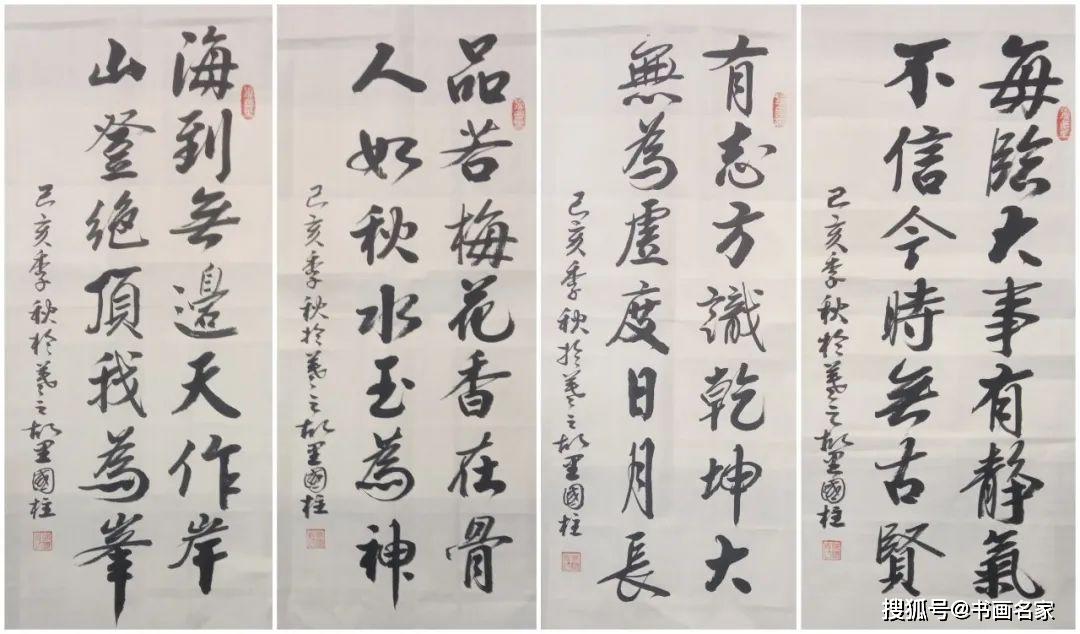 每臨大事有静氣
不信今時無古賢
己亥季秋於羲之故里國柱
有志方識乾坤大
無為虛度日月長
己亥季秋於羲之故里國柱
品若梅花香在骨
人如秋水玉為神
己亥季秋於羲之故里國柱
海到無邊天作岸
山登絶頂我為峯
己亥季秋於羲之故里國柱
搜狐号@书画名家